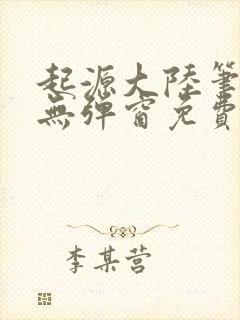 起源大陸筆
無彈窗免費
李某营